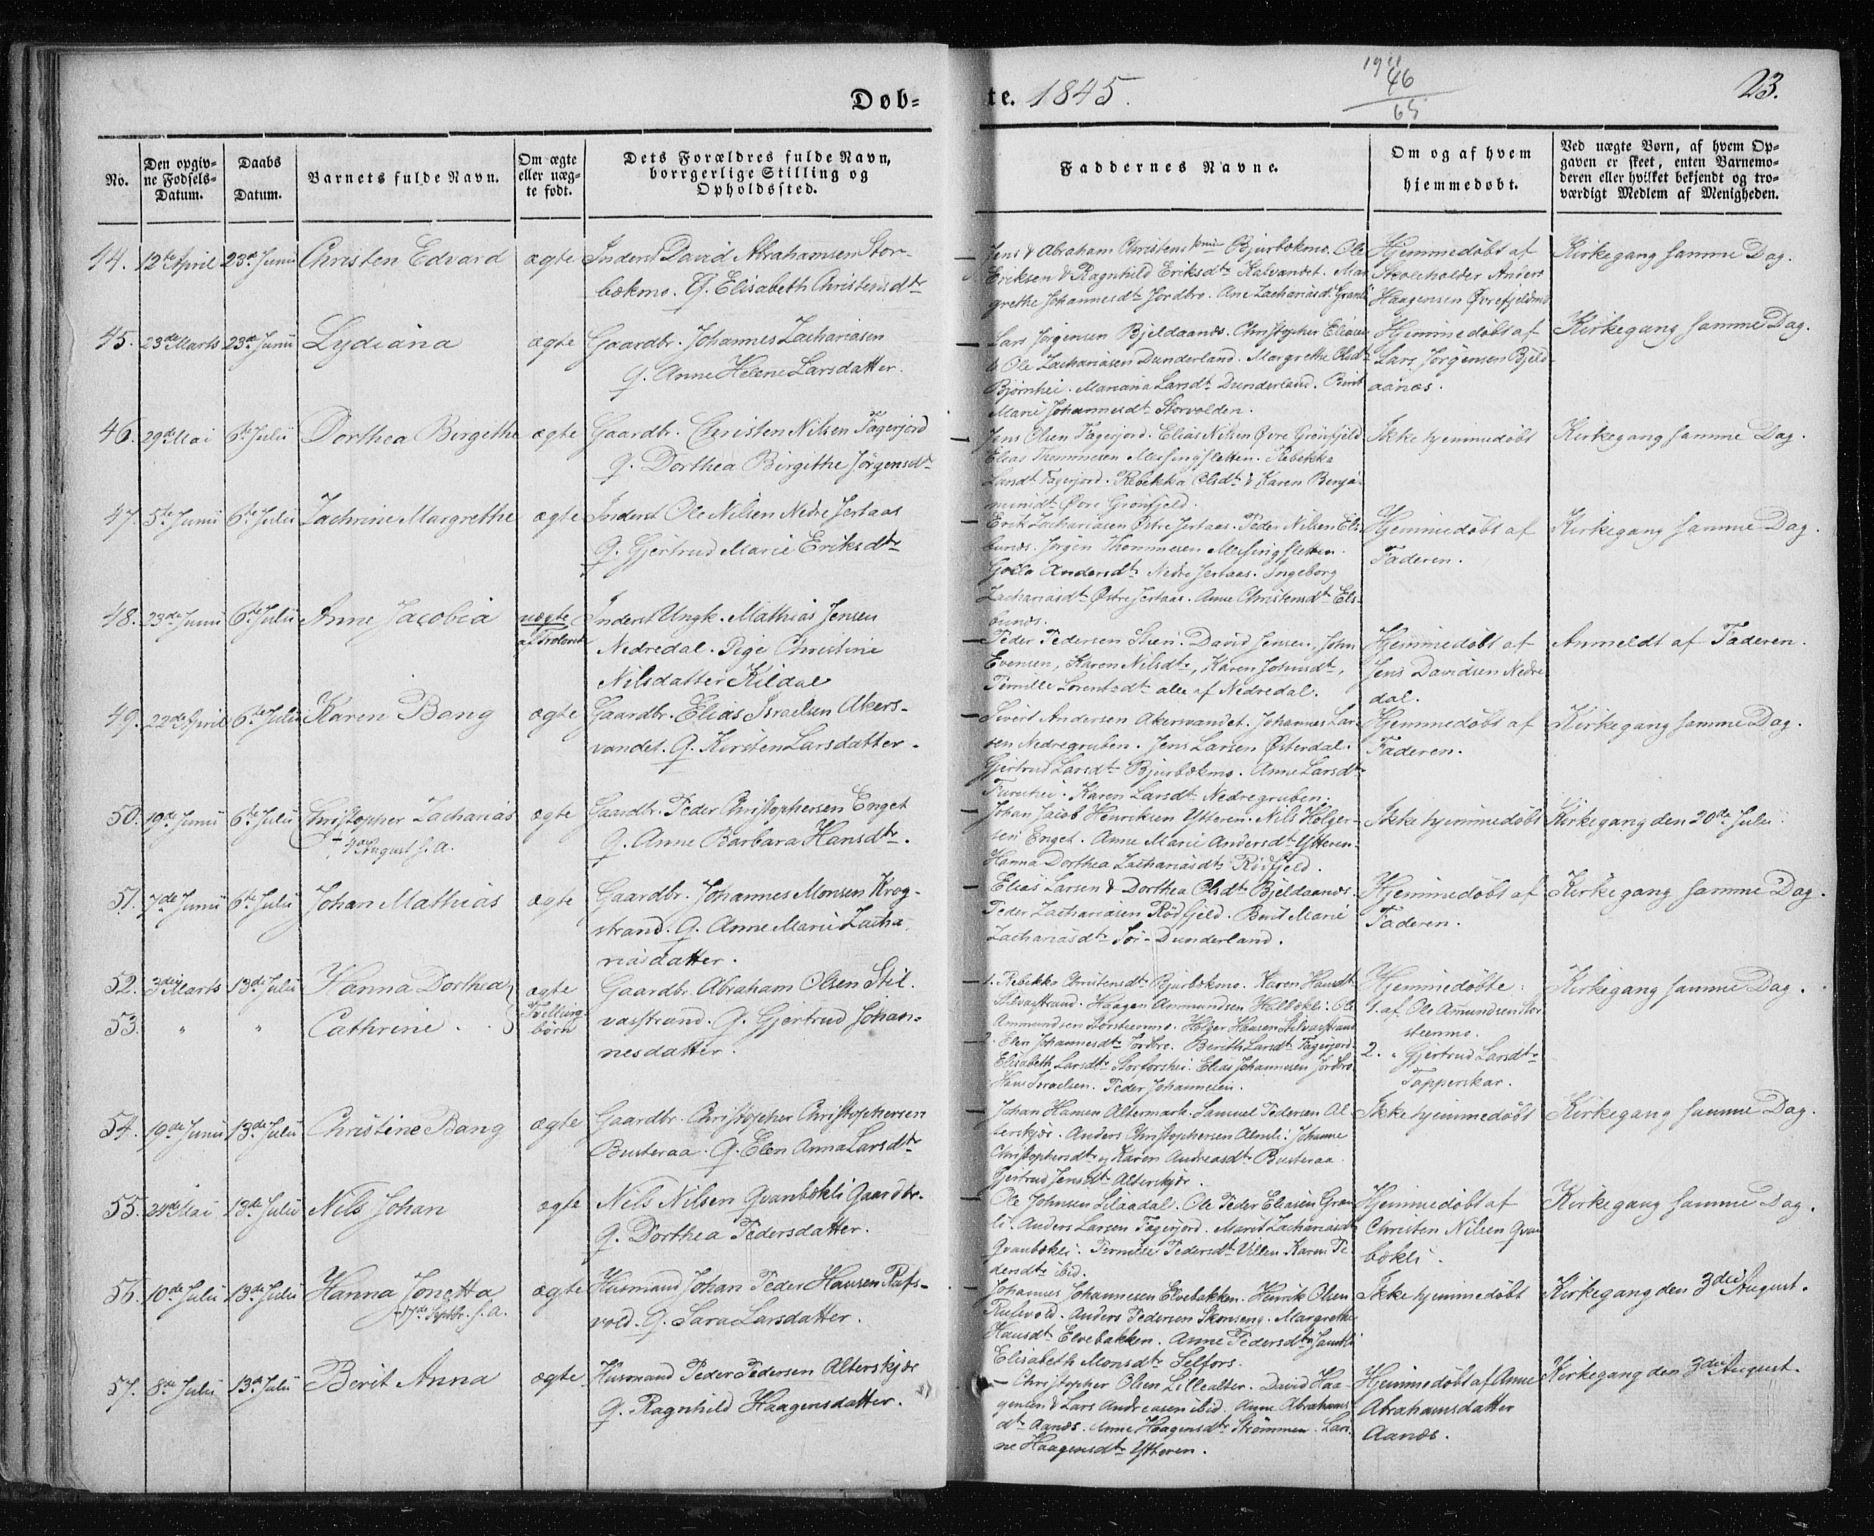 Døb-
te. 1845.
1911
46
65
23.
No.
Den opgiv-
ne Fødsels-
Datum.
Daabs
Datum.
Barnets fulde Navn.
Om ægte
eller uæg-
te født.
Dets Forældres fulde Navn,
borrgerlige Stilling og
Opholdssted.
Faddernes Navne.
Om og af hvem
hjemmedøbt.
Ved uægte Børn, af hvem Op-
gaven er skeet, enten Barnemo-
deren eller hvilket bekjendt og tro-
værdigt Medlem af Menigheden.
44. 12te April 23de Junii Christen Edvard ægte Inderst David Abrahamsen Stor-
bækmo. Q. Elisabeth Christensdtr
Jens & Abraham Christens Bjurbækmo. Ole
Eriksen & Ragnhild Eriksdtr Kalvandet. Mar
grethe Johannesdtr Jordbro. Ane Zachariasdtr Granli
Hjemmedøbt af
Skoleholder Anders
Haagensen Øvrefjeldmo
Kirkegang samme Dag.
45. 23de Marts 23de Junii Lydiana ægte Gaardbr. Johannes Zachariasen
Q. Anne Helene Larsdatter.
Lars Jørgensen Bjeldaanæs. Christopher Eliasen
& Ole Zachariasen Dunderland. Margrethe Olsdtr
Bjørnhei. Mariana Larsdtr Dunderland. Berit
Marie Johannesdtr Storvolden.
Hjemmedøbt af
Lars Jørgensen Bjeld-
aanæs.
Kirkegang samme Dag.
46. 29de Mai 6te Julii Dorthea Birgethe ægte Gaardbr. Christen Nilsen Fagerjord
Q. Dorthea Birgithe Jørgensdtr
Jens Olsen Fagerjord. Elias Nilsen Øvre Grønfjeld
Elias Thommesen Messingsletten. Rebekka
Larsdtr Fagerjord. Rebekka Olsdtr & Karen Benja-
minsdtr Øvre Grønfjeld.
Ikke hjemmedøbt
Kirkegang samme Dag.
47. 5te Junii 6te Julii Zachrine Margrethe ægte Inderst Ole Nilsen Nedre Jertaas
Q. Gjertrud Marie Eriksdtr
Erik Zachariasen Østre Jertaas. Peder Nilsen Els-
bunæs. Jørgen Thommesen Messingsletten.
Andersdtr Nedre Jertaas. Ingeborg
Zachariasdtr Østre Jertaas. Anne Christensdtr Els-
bunæs.
Hjemmedøbt af
Faderen.
Kirkegang samme Dag.
48. 23de Junii 6te Julii Anne Jacobia uægte
Inderst Ungk. Mathias Jensen
Nedredal. Pige Christine
Nilsdatter Kildal
Peder Pedersen Steen. David Jensen, John
Evensen, Karen Nilsdtr, Karen Johnsdtr,
Pernille Lorentsdtr alle af Nedredal.
Hjemmedøbt af
Jens Davidsen Nedre
dal.
Anmeldt af Faderen.
49. 22de April 6te Julii Karen Bang ægte Gaardbr. Elias Israelsen Akers-
vandet. Q. Kirsten Larsdatter.
Sivert Andersen Akersvandet. Johannes Lar-
sen Nedregruben. Jens Larsen Østerdal.
Gjertrud Larsdtr Bjurbækmo. Anne Larsdtr
Furuhei. Karen Larsdtr Nedregruben.
Hjemmedøbt af
Faderen.
Kirkegang samme Dag.
50. 19de Junii 6te Julii Christopher Zacharias ægte Gaardbr. Peder Christophersen Enget
August s. a.
Q. Anne Barbara Hansdtr.
Johan Jacob Henriksen Ytteren. Nils Holger-
sen Enget. Anne Marie Andersdtr Ytteren.
Hanna Dorthea Zachariasdtr Rødfjeld.
Ikke hjemmedøbt
Kirkegang den 20de Julii.
51. 7de Junii 6te Julii Johan Mathias ægte Gaardbr. Johannes Monsen Krog-
strand. Q. Anne Marie Zacha-
riasdatter.
Elias Larsen & Dorthea Olsdtr Bjeldaanæs.
Peder Zachariasen Rødfjeld. Berit Marie
Zachariasdtr Sør-Dunderland.
Hjemmedøbt af
Faderen.
Kirkegang samme Dag.
52. 3die Marts 13de Julii Hanna Dorthea ægte Gaardbr. Abraham Olsen Stil-
53. " " Cathrine. Tvilling-
børn
vasstrand. Q. Gjertrud Johan-
nesdatter.
1. Rebekka Christensdtr Bjurbækmo. Karen Hansdtr
Stilvastrand. Haagen Ammundsen Ole
Ammundsen Storsteenmo. Holger Hansen Stilvasstrand
2. Elen Johannesdtr Jordbro. Berith Larsdtr Fagerjord.
Elisabeth Larsdtr Storforshei. Elias Johannesen Jordbro
Hans Israelsen. Peder Johannesen.
Hjemmedøbte.
1. af Ole Amundsen Stor-
steenmo.
2. " Gjertrud Larsdtr
Tapperskar.
Kirkegang samme Dag.
54. 19de Junii 13de Julii Christine Bang ægte Gaardbr. Christopher Christophersen
Busteraa. Q. Elen Anna Larsdtr
Johan Hansen Altermark. Samuel Pedersen Al-
terskjær. Anders Christophersen Almli. Johanne
Christophersdtr & Karen Andreasdtr Busteraa.
Gjertrud Jensdtr Alterskjær.
Ikke hjemmedøbt
Kirkegang samme Dag.
55. 24de Mai 13de Julii Nils Johan ægte Nils Nilsen Qvanbækli Gaardbr.
Q. Dorthea Pedersdatter.
Ole Johnsen Lilaadal. Ole Peder Eliasen Gran-
li. Anders Larsen Fagerjord. Marit Zachariasdtr
Qvanbækli. Pernille Pedersdtr Villen. Karen Pe-
dersdtr ibid.
Hjemmedøbt af
Christen Nilsen Qvan-
bækli.
Kirkegang samme Dag.
56. 10de Julii 13de Julii Hanna Jonetta ægte Husmand Johan Peder Hansen Rufs-
17de Septbr. s. a.
vold. Q. Sara Larsdatter.
Johannes Johannesen Elvebakken. Henrik Olsen
Rufsvold. Anders Pedersen Skonseng. Margrethe
Hansdtr Elvebakken. Anne Pedersdtr
Elisabeth Monsdtr Selfors.
Ikke hjemmedøbt
Kirkegang den 3die August.
57. 8de Julii 13de Julii Berit Anna ægte Husmand Peder Pedersen Alterskjær
Q. Ragnhild Haagensdatter.
Christopher Olsen Lillealter. David Haa-
gensen & Lars Andreasen ibid. Anne Abrahams-
dtr Aanæs. Anne Haagensdtr Strømmen. Lar-
ne Haagensdtr Ytteren.
Hjemmedøbt af Anne
Abrahamsdatter
Aanæs.
Kirkegang den 3die August.